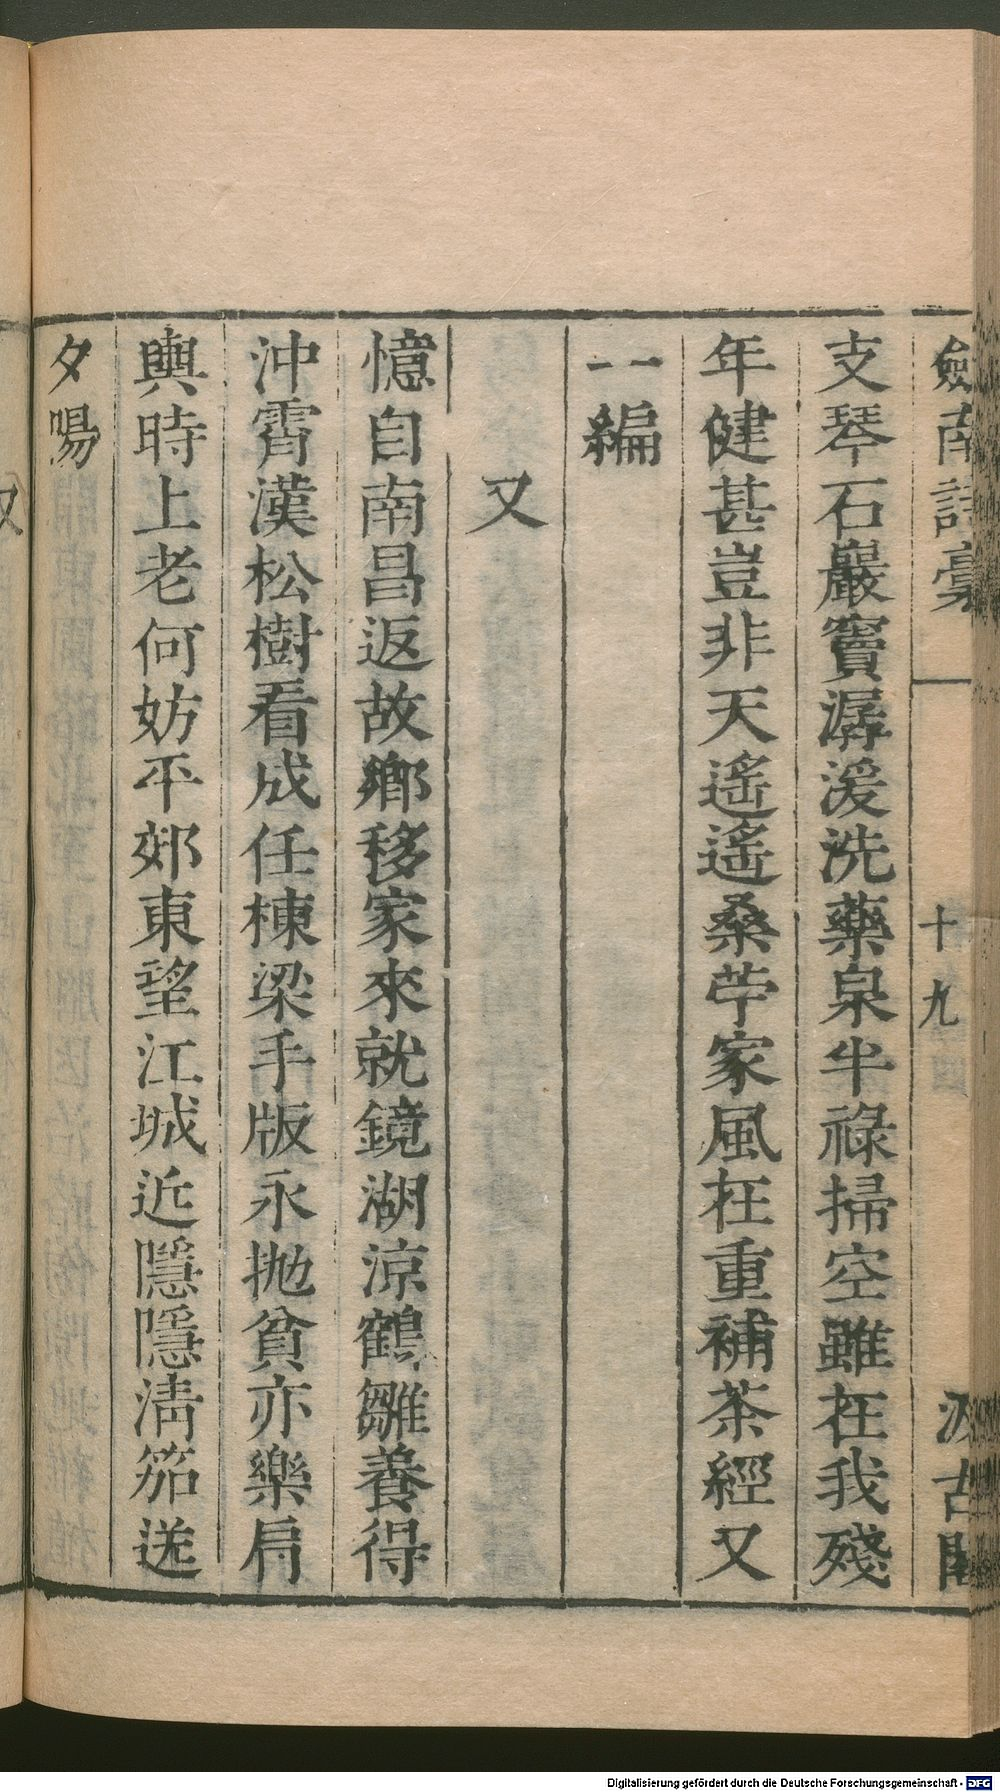 劍南詩稾 十九 汲古閣
支琴石巖竇潺湲洗藥泉半祿掃空雖在我殘
年健甚豈非天遙遙桑苧家風在重補茶經又
一編
又
憶自南昌返故鄉移家來就鏡湖涼鶴雛養得
沖霄漢松樹看成任棟梁手版永抛貧亦樂肩
輿時上老何妨平郊東望江城近隱隱淸笳送
夕陽
又
Digitalisierung gefördert durch die Deutsche Forschungsgemeinschaft - DFG